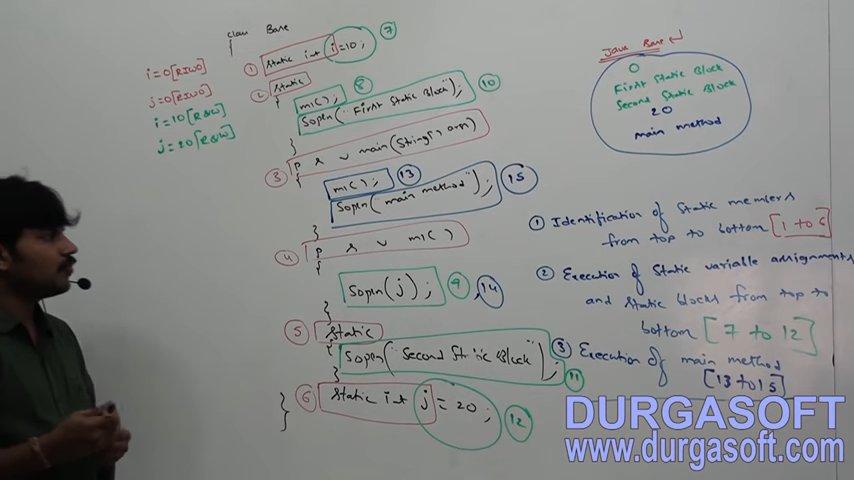 class Base
{
① static int i=10; ⑦
② static
{
m1(); ⑧
Sopln("First Static Block"); ⑩
}
③ p s v main(String[] args)
{
m1(); ⑬
Sopln("main method"); ⑮
}
④ p s v m1()
{
Sopln(j); ⑨, ⑭
}
⑤ static
{
Sopln("Second Static Block"); ⑪
}
⑥ static int j = 20; ⑫
}
i=0[RIWO]
j=0[RIWO]
i=10[R&W]
j=20[R&W]
Java Base ↵
0
First Static Block
Second Static Block
20
main method
① Identification of static members
from top to bottom [1 to 6]
② Execution of static variable assignments
and static blocks from top to
bottom [7 to 12]
③ Execution of main method
[13 to 15]
DURGASOFT
www.durgasoft.com